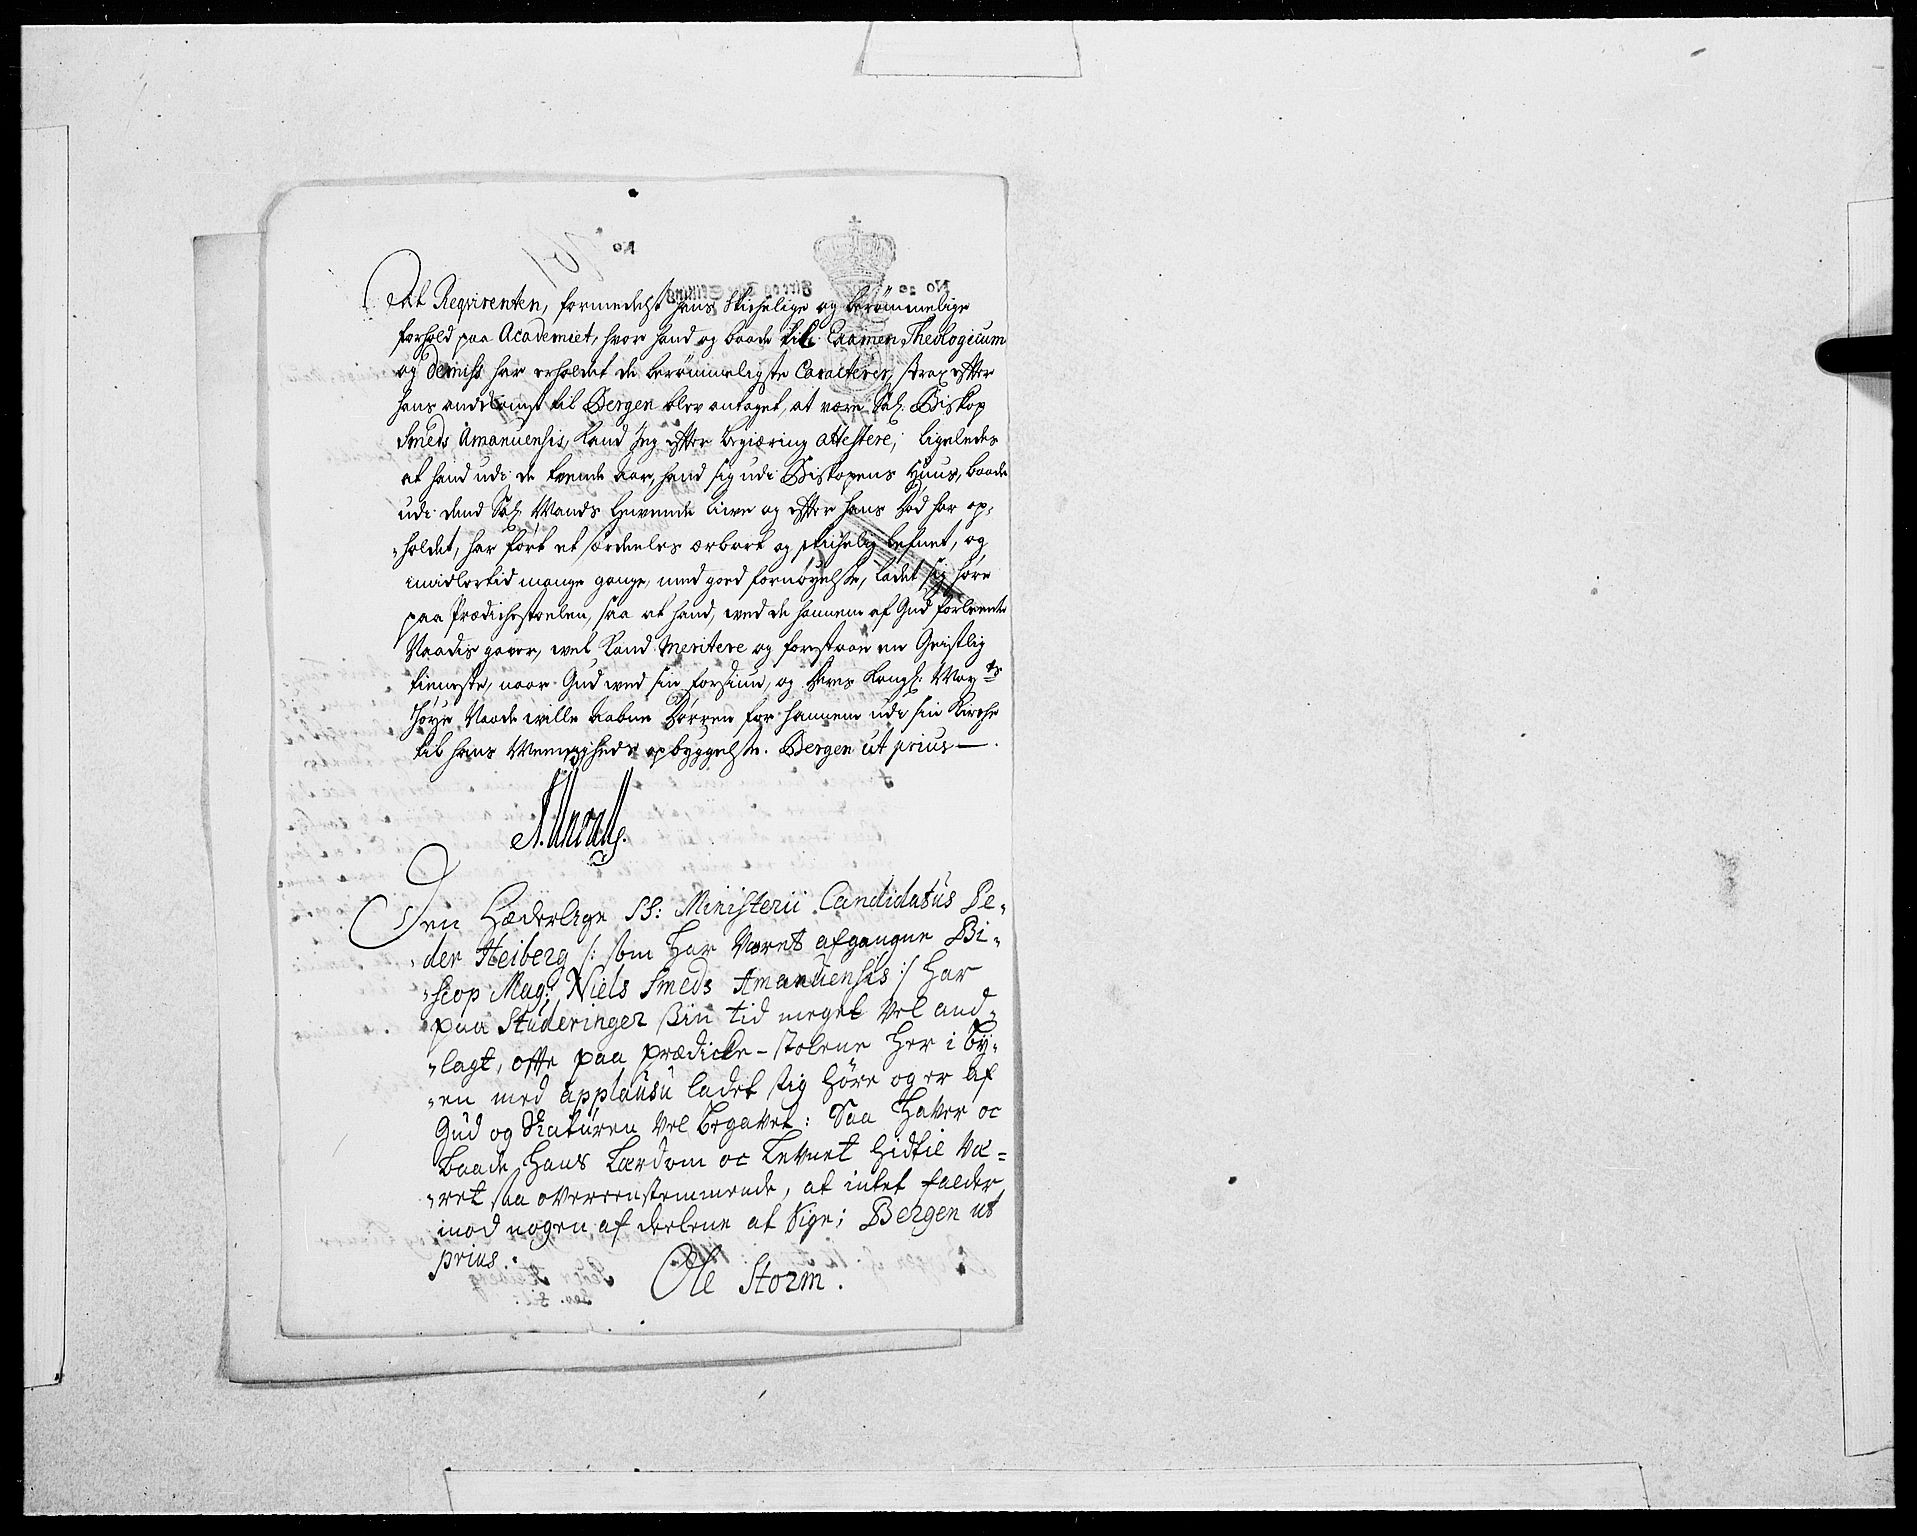 At Reqvirenten, formedelst hans Skichelige og berømmelige
forhold paa Academiet, hvor hand og baade til Examen Theologicum
og demiss har erholdet de berømmeligste Caracterer, strax efter
hans andkomst til Bergen blev antaget, at være Sal. Biskop
Smeds Amanuensis, kand Jeg efter begiæring attestere; ligeledes
at hand udi de tvende Aar, hand sig udi Biskopens Huus, baade
udi dend Sal. Mands Levende Live og efter hans Død har op-
-holdet, har ført et særdeeles ærbart og skichelig lefnet, og
imidlertid mange gange, med goed fornøyelse, ladet sig høre
paa Prædichestoelen, saa at hand, ved de hannem af Gud forleente
Naadis gaver, vel kand meritere og forestaae en Geistlig
tieneste, naar Gud ved sin forsiun, og Deres Kongl. May.ts
høye Naade ville aabne Dørren for hannem udi sin Kirche
til hans Meenigheds opbyggelse. Bergen ut prius —.
Den Hæderlige SS: Ministerii Candidatus Pe-
-der Heiberg /: som har været afgangne Bi-
-scop Mag: Niels Smeds Amanuensis :/ har
paa Studeringer sin tid meget vel and-
-lagt, offte paa prædicke-stolene her i by-
-en med applausu ladet sig høre og er af
Gud og Naturen vel begavet: Saa haver oc
baade hans Lærdom oc Levnet hidtil væ-
-ret saa overeenstemmende, at intet falder
imod nogen af deelene at sige; Bergen ut
prius.
Ole Storm.